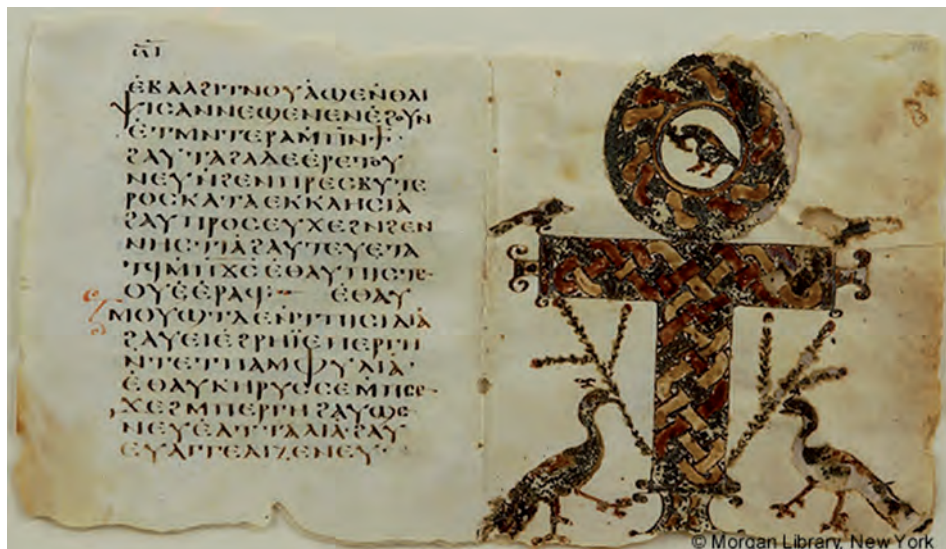 ⲉⲃⲁⲗϩⲓⲧⲛⲟⲩⲁϣⲉⲛⲑⲗⲓ
ⲯⲓⲥⲁⲛⲛⲉϣⲉⲛⲉⲛⲉϩⲟⲩⲛ
ⲉⲧⲙⲛⲧⲉⲣⲁⲙⲡⲛ̅ϯ·
ϩⲁⲩⲧⲁϩⲁⲗⲉⲉⲣⲉⲧⲟⲩ
ⲛⲉⲩⲛ̇ϩⲉⲛⲡⲣⲉⲥⲃⲩⲧⲉ
ⲣⲟⲥⲕⲁⲧⲁⲉⲕⲕⲗⲏⲥⲓⲁ
ϩⲁⲩⲡⲣⲟⲥⲉⲩⲭⲉϩⲛϩⲉⲛ
ⲛⲏⲥⲧⲓⲁϩⲁⲩⲧⲉⲩⲉⲧⲁ
ⲧϥⲙⲡⲭ̅ⲥ̅ⲉⲑⲁⲩⲡⲓⲥⲧⲉ
ⲟⲩⲉⲉⲣⲁϥ: ⲉⲑⲁⲩ
ⲙⲟⲩϣⲧⲇⲉⲛⲧⲡⲓⲥⲓⲇⲓⲁ
ϩⲁⲩⲉⲓⲉϩⲣⲏⲓ̈ⲉⲡⲉⲣⲅⲏ
ⲛⲧⲉⲧⲡⲁⲙⲫⲩⲗⲓⲁ·
ⲉⲑⲁⲩⲕⲏⲣⲩⲥⲥⲉⲙⲡⲥⲉ
ϫⲉϩⲙⲡⲉⲣⲅⲏϩⲁⲩϣⲉ
ⲛⲉⲩⲉⲁⲧⲧⲁⲗⲓⲁ·ϩⲁⲩ
ⲉⲩⲁⲅⲅⲉⲗⲓⲍⲉⲛⲉⲩ·
© Morgan Library, New York